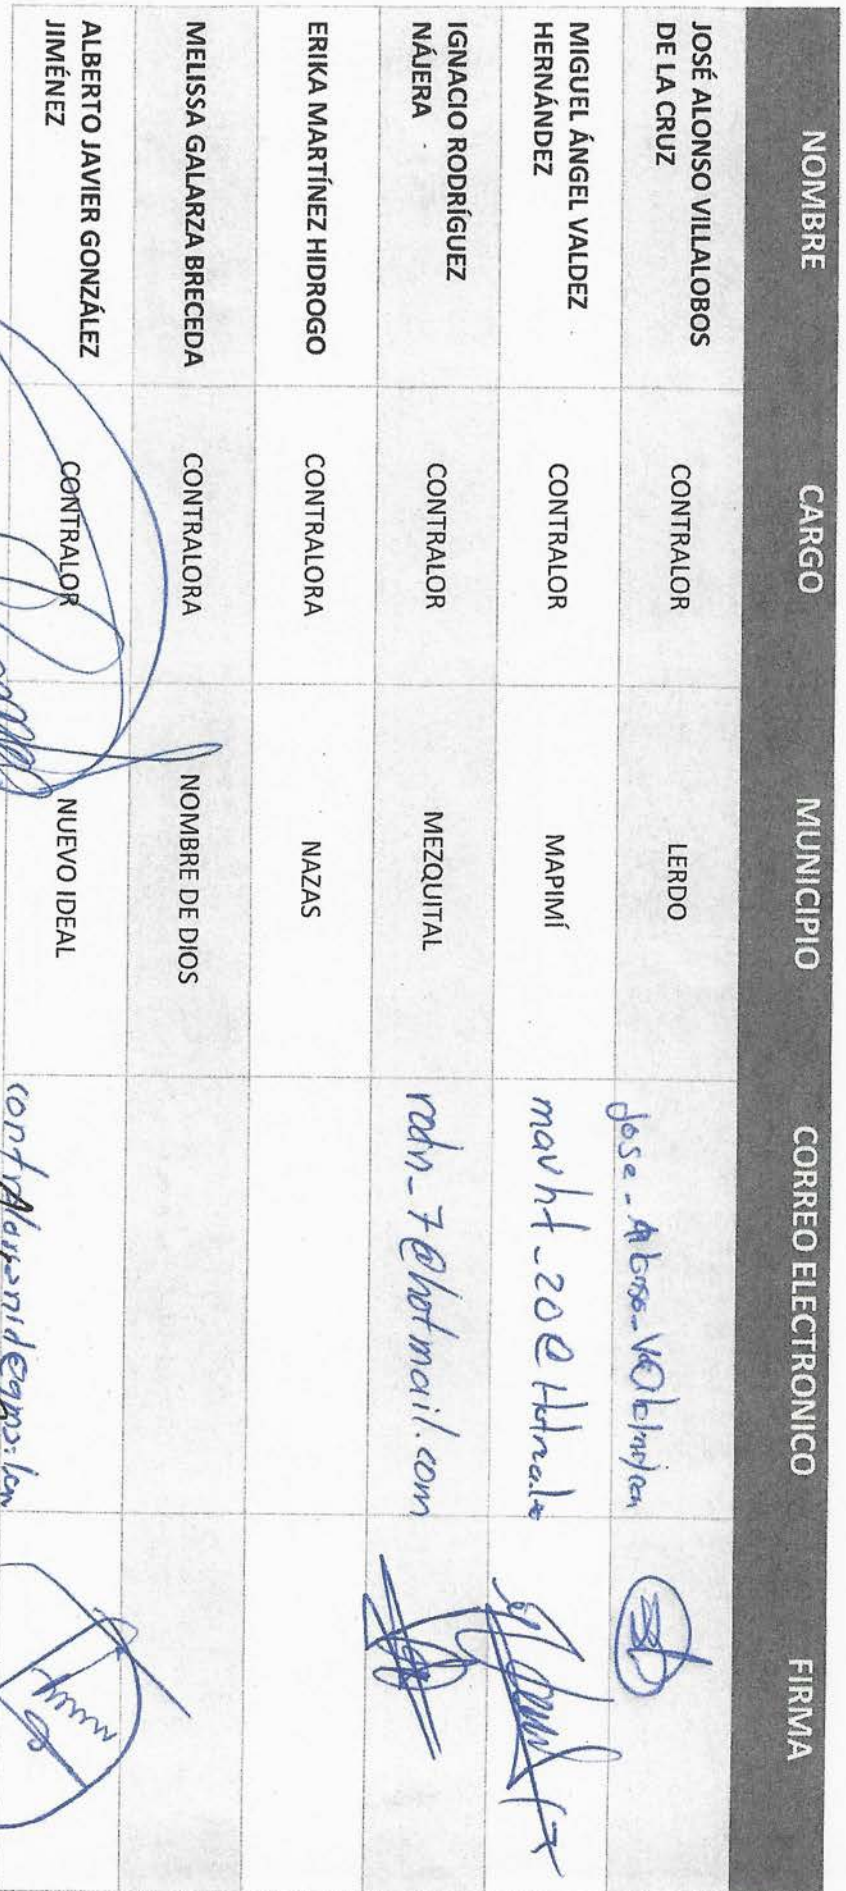 NOMBRE CARGO MUNICIPIO CORREO ELECTRONICO FIRMA
JOSÉ ALONSO VILLALOBOS
DE LA CRUZ CONTRALOR LERDO
MIGUEL ÁNGEL VALDEZ
HERNÁNDEZ CONTRALOR MAPIMÍ
IGNACIO RODRÍGUEZ
NÁJERA CONTRALOR MEZQUITAL rodn_7@hotmail.com
ERIKA MARTÍNEZ HIDROGO CONTRALORA NAZAS
MELISSA GALARZA BRECEDA CONTRALORA NOMBRE DE DIOS
ALBERTO JAVIER GONZÁLEZ
JIMÉNEZ CONTRALOR NUEVO IDEAL